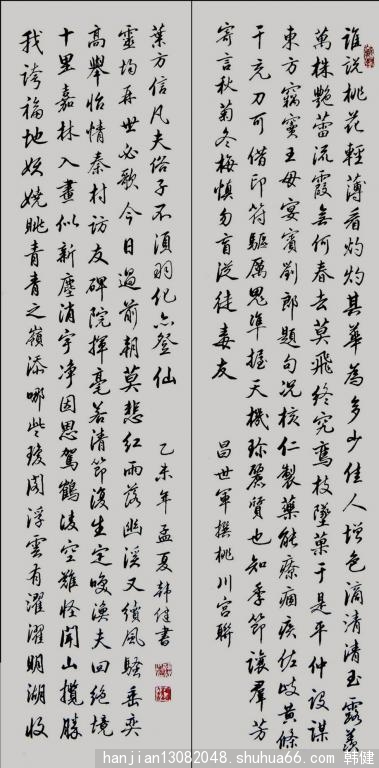 誰説桃花輕薄看灼灼其華為多少佳人增色滴清清玉露羨
萬株艷蕾流霞無何春去莫飛終究彎枝墜菓于是平仲設謀
東方竊寶王母宴賓劉郎題句况核仁製藥能療痼疾佐岐黄條
干充刀可借印符驅厲鬼準握天機珍麗質也知季節讓羣芳
寄言秋菊冬梅慎勿盲從徒毒友
昌世軍撰桃川宫聯
我誇福地妖嬈眺青青之嶺添哪些瓊閣浮雲有濯濯明湖收
十里嘉林入畫似新塵消宇净因思駕鶴凌空難怪開山攬勝
高舉怡情秦村訪友碑院揮毫若清節復生定唤漁夫回絶境
靈均再世必歌今日過前朝莫悲紅雨落幽溪又續風騷垂奕
葉方信凡夫俗子不須羽化亦登仙
乙未年孟夏韓健書
hanjian13082048.shuhua66.com 韩健